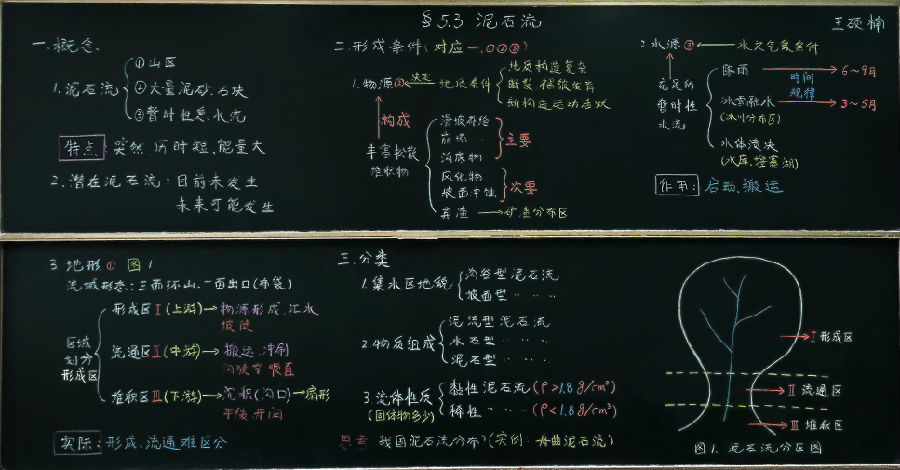 §5.3 泥石流
王硕楠
一. 概念.
1. 泥石流
① 山区
② 大量泥砂、石块
③ 暂时性急水流
特点: 突然、历时短、能量大
2. 潜在泥石流: 目前未发生
未来可能发生
二. 形成条件(对应一.①②③)
1. 物源② 决定 地质条件
地质构造复杂
断裂、褶皱发育
新构造运动活跃
构成
丰富松散
堆积物
滑坡
崩塌
沟底物
主要
风化物
坡面冲蚀
次要
弃渣 矿渣分布区
2. 水源③ 水文气象条件
充足的
暂时性
水流
降雨 6~9月
时间
规律
冰雪融水 3~5月
(冰川分布区)
水体溃决
(水库、堰塞湖)
作用: 启动、搬运
3. 地形① 图1
流域形态: 三面环山、一面出口(布袋)
区域
划分
形成区
形成区Ⅰ(上游) 物源形成、汇水
坡陡
流通区Ⅱ(中游) 搬运、冲刷
沟狭窄 顺直
堆积区Ⅲ(下游) 沉积(沟口) 扇形
平缓开阔
实际: 形成、流通难区分
三. 分类
1. 集水区地貌
沟谷型泥石流
坡面型 ‥ ‥ ‥
2. 物质组成
泥流型泥石流
水石型 ‥ ‥ ‥
泥石型 ‥ ‥ ‥
3. 流体性质
(固体物多少)
黏性泥石流(ρ>1.8g/cm³)
稀性 ‥ ‥ ‥ (ρ<1.8g/cm³)
思考: 我国泥石流分布?(实例: 舟曲泥石流)
Ⅰ 形成区
Ⅱ 流通区
Ⅲ 堆积区
图1. 泥石流分区图